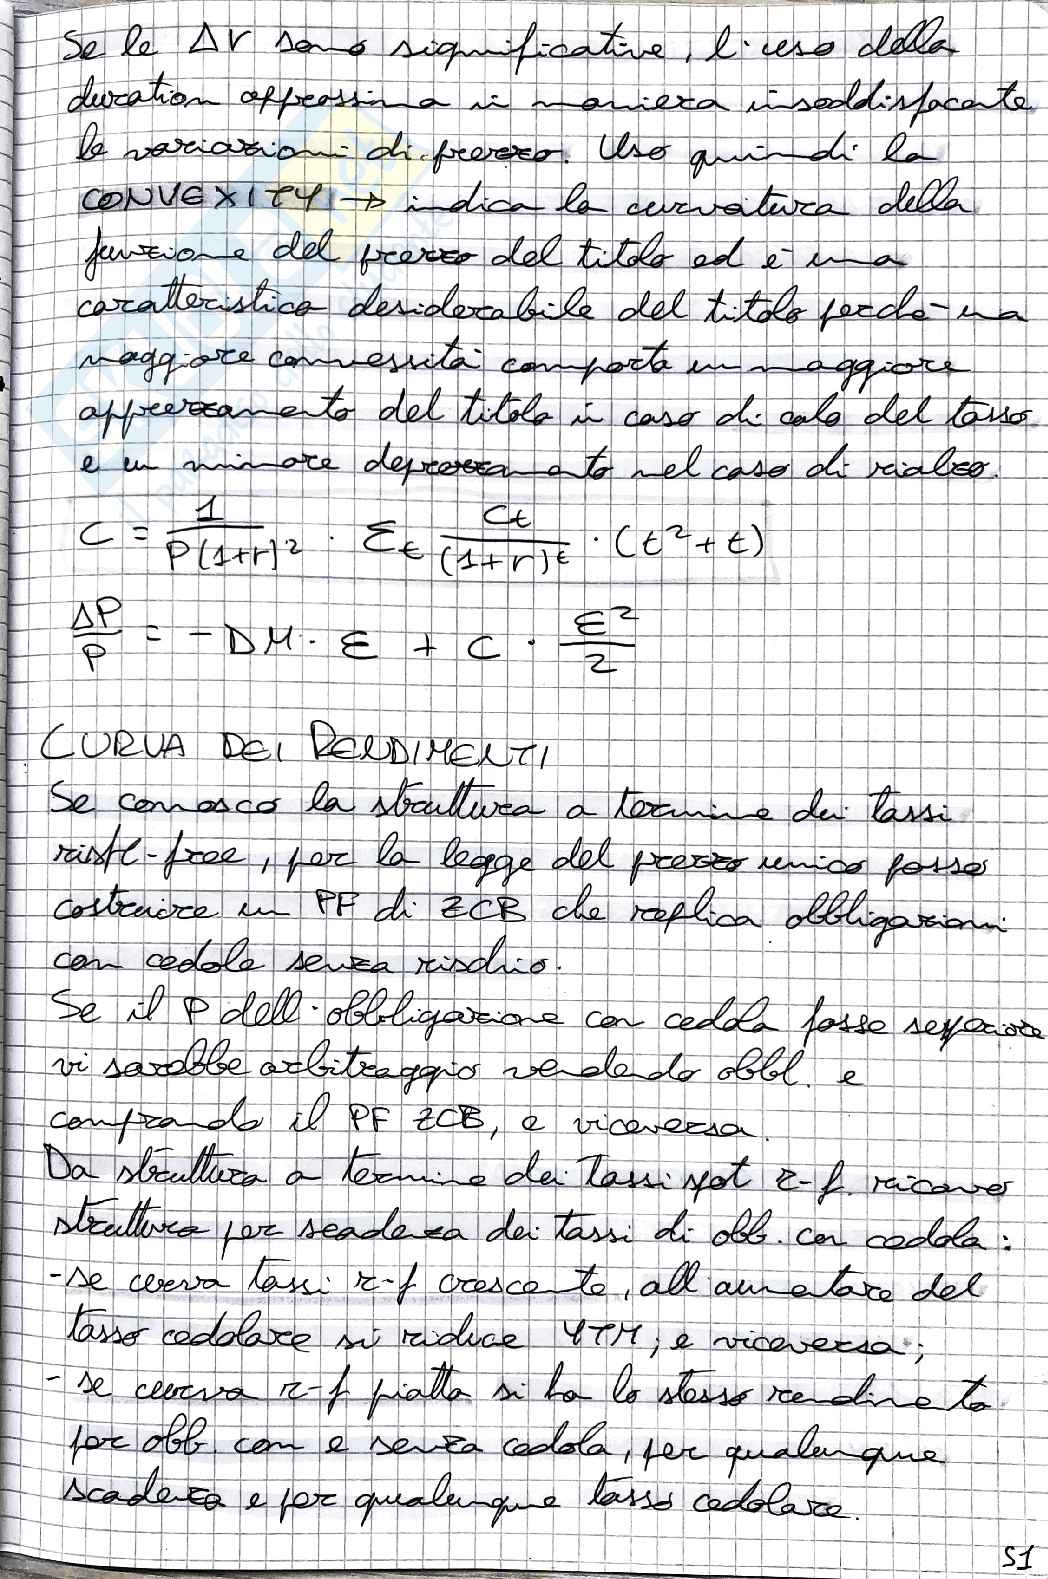 Se le Δr sono significative, l'uso della
duration approssima in maniera insoddisfacente
le variazioni di prezzo. Uso quindi la
CONVEXITY → indica la curvatura della
funzione del prezzo del titolo ed è una
caratteristica desiderabile del titolo perché una
maggiore convessità comporta un maggiore
apprezzamento del titolo in caso di calo del tasso
e un minore deprezzamento nel caso di rialzo.
C = 1 / P(1+r)² · Σt Ct / (1+r)^t · (t²+t)
ΔP/P = -DM · ε + C · ε²/2
CURVA DEI RENDIMENTI
Se conosco la struttura a termine dei tassi
risk-free, per la legge del prezzo unico posso
costruire un PF di ZCB che replica obbligazioni
con cedola senza rischio.
Se il P dell'obbligazione con cedola fosse superiore
vi sarebbe arbitraggio vendendo obbl. e
comprando il PF ZCB, e viceversa.
Da struttura a termine dei tassi spot r-f ricavo
struttura per scadenza dei tassi di obb. con cedola:
-se curva tassi r-f crescente, all'aumentare del
tasso cedolare si riduce YTM, e viceversa;
- se curva r-f piatta si ha lo stesso rendimento
per obb. con e senza cedola, per qualunque
scadenza e per qualunque tasso cedolare.
51